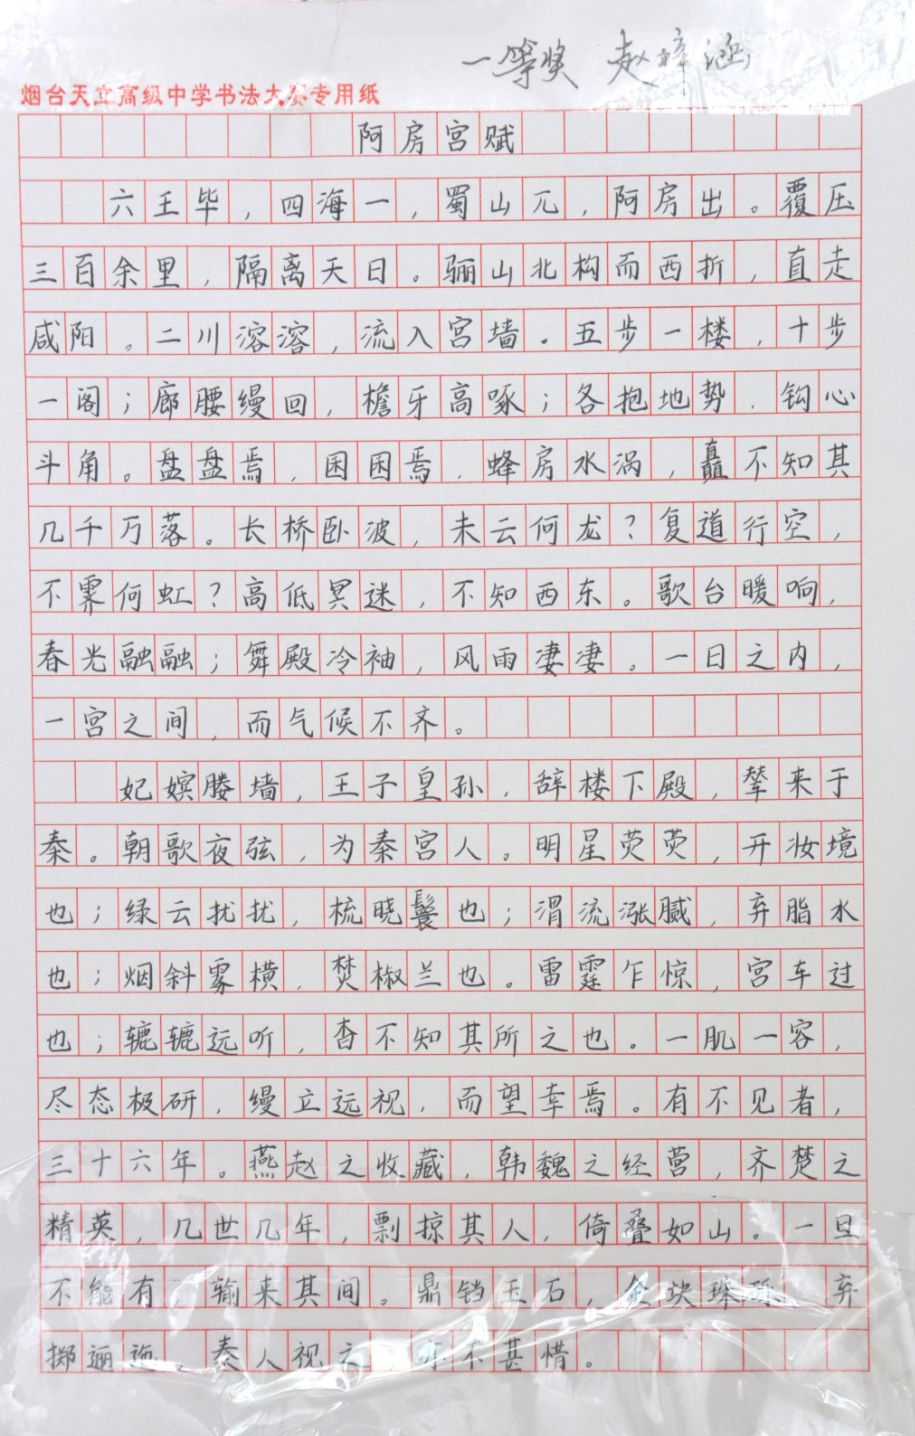 一等奖 赵梓涵
烟台天立高级中学书法大赛专用纸
阿房宫赋
六王毕，四海一，蜀山兀，阿房出。覆压
三百余里，隔离天日。骊山北构而西折，直走
咸阳。二川溶溶，流入宫墙。五步一楼，十步
一阁；廊腰缦回，檐牙高啄；各抱地势，钩心
斗角。盘盘焉，困困焉，蜂房水涡，矗不知其
几千万落。长桥卧波，未云何龙？复道行空，
不霁何虹？高低冥迷，不知西东。歌台暖响，
春光融融；舞殿冷袖，风雨凄凄。一日之内，
一宫之间，而气候不齐。
妃嫔媵墙，王子皇孙，辞楼下殿，辇来于
秦。朝歌夜弦，为秦宫人。明星荧荧，开妆境
也；绿云扰扰，梳晓鬟也；渭流涨腻，弃脂水
也；烟斜雾横，焚椒兰也。雷霆乍惊，宫车过
也；辘辘远听，杳不知其所之也。一肌一容，
尽态极研，缦立远视，而望幸焉。有不见者，
三十六年。燕赵之收藏，韩魏之经营，齐楚之
精英，几世几年，剽掠其人，倚叠如山。一旦
不能有，输来其间。鼎铛玉石，金块珠砾，弃
掷逦迤，秦人视之，亦不甚惜。